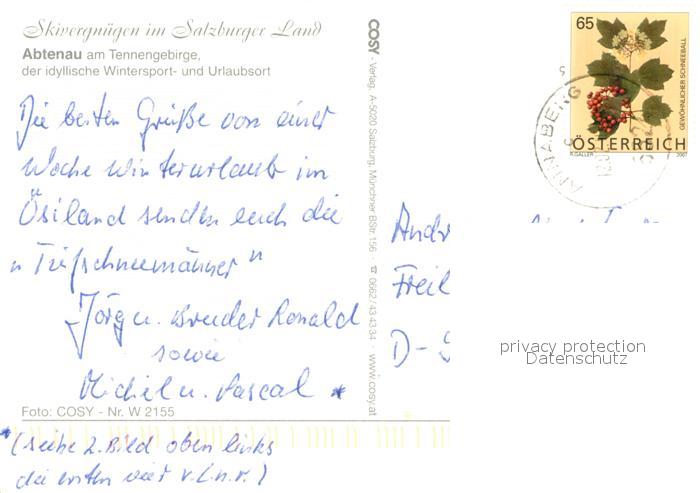 Skivergnügen im Salzburger Land
Abtenau am Tennengebirge,
der idyllische Wintersport- und Urlaubsort
Die besten Grüße von einer
Woche Winterurlaub im
Ösiland senden euch die
"Tiefschneemänner"
Jörg u. Bruder Ronald
sowie
Michel u. Pascal *
Foto: COSY - Nr. W 2155
*(siehe 2. Bild oben links
die ersten vier v.l.n.r.)
COSY - Verlag, A-5020 Salzburg, Münchner BStr. 156 · ☎ 0662/434334 · www.cosy.at
65
GEWÖHNLICHER SCHNEEBALL
ÖSTERREICH
R.GALLER 2007
ANNABERG
Andr
Freil
D-
privacy protection
Datenschutz